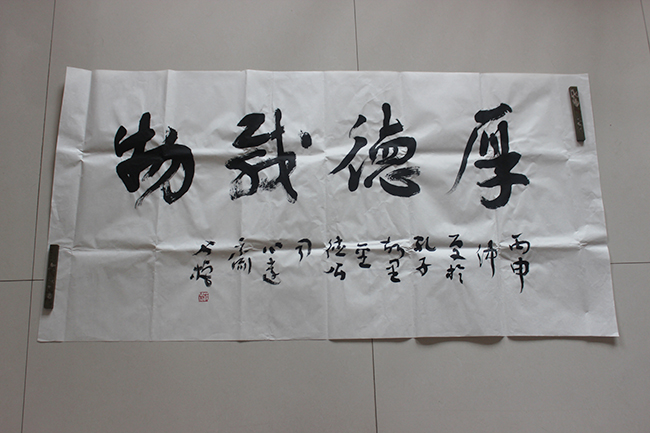 厚德载物
丙申
仲
夏於
孔子
故里
至
德公
司